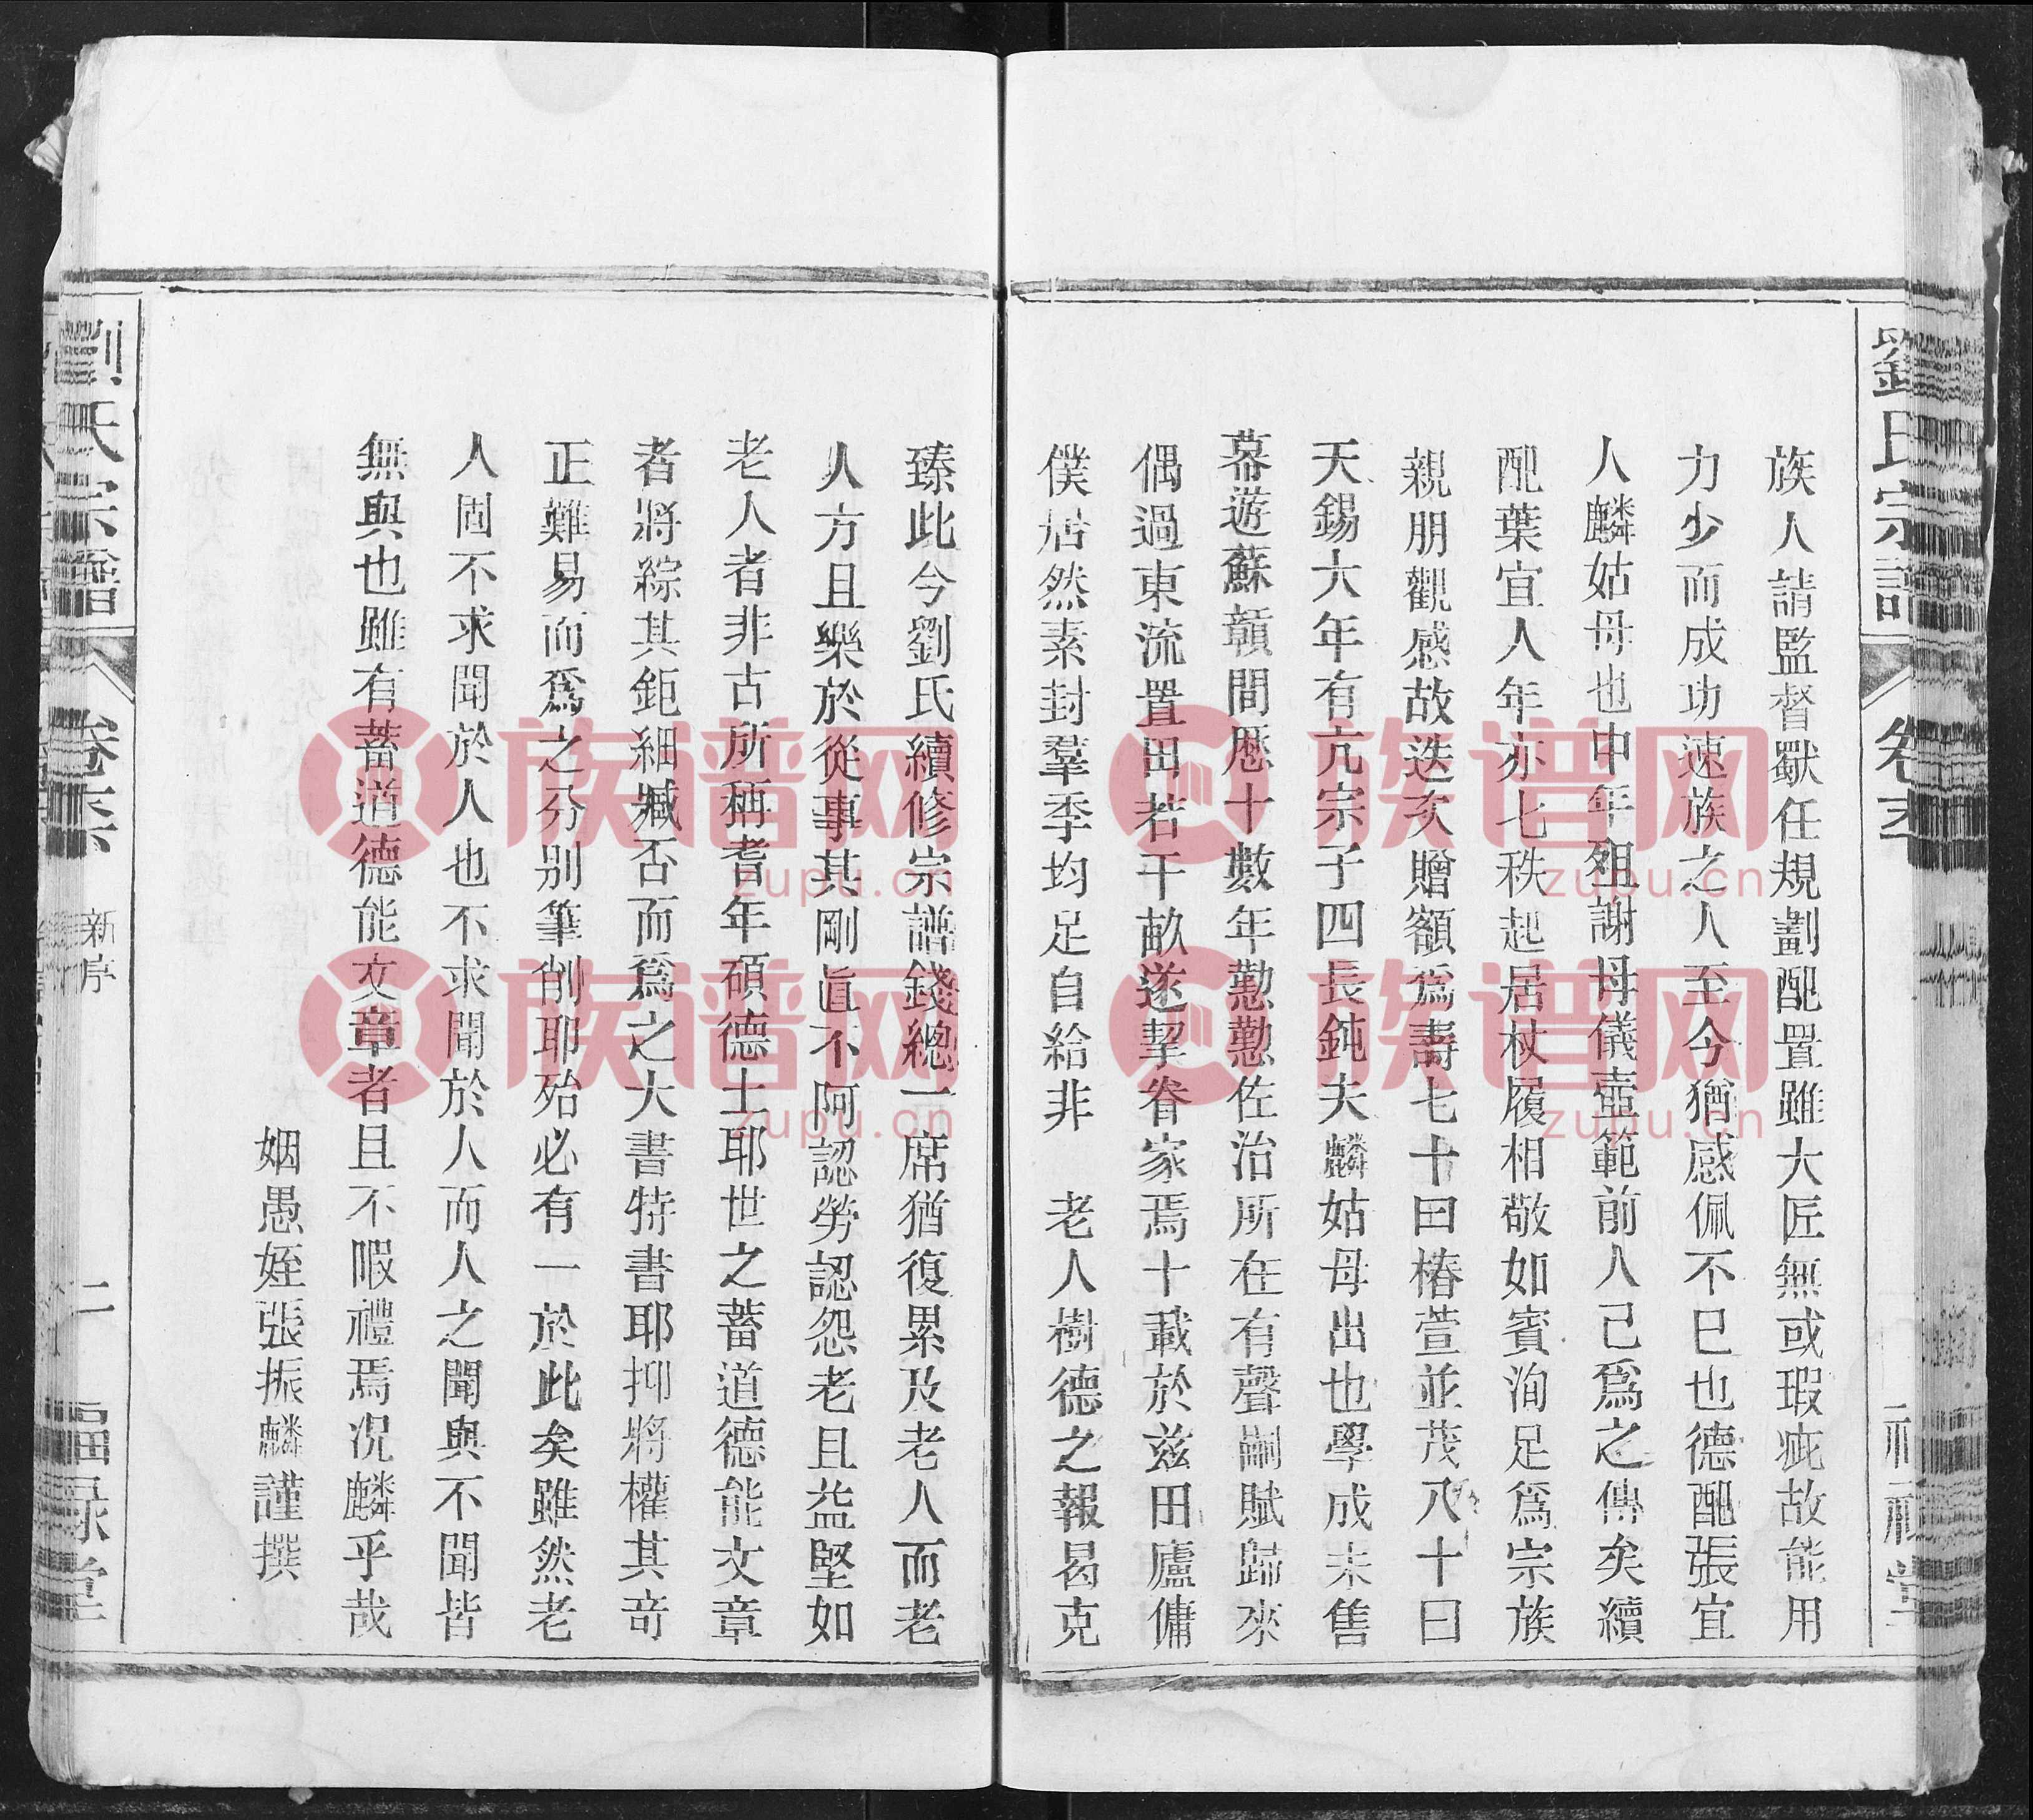 劉氏宗譜
族人請監督獻任規劃配置雖大匠無或瑕疵故能用
力少而成功速族之人至今猶感佩不巳也德配張宜
人麟姑母也中年殂謝母儀壼範前人己爲之傳矣續
配葉宜人年亦七秩起居杖履相敬如賓洵足爲宗族
親朋觀感故迭次贈額爲壽七十曰椿萱並茂八十曰
天錫大年有亢宗子四長鈍夫麟姑母出也學成未售
幕遊蘇贛間歷十數年懃懃佐治所在有聲嗣賦歸來
偶過東流置田若干畝遂挈眷家焉十載於兹田廬傭
僕居然素封羣季均足自給非 老人樹德之報曷克
臻此今劉氏續修宗譜錢總一席猶復累及老人而老
人方且樂於從事其剛直不阿認勞認怨老且益堅如
老人者非古所稱耆年碩德士耶世之蓄道德能文章
者將綜其鉅細臧否而爲之大書特書耶抑將權其奇
正難易而爲之分別筆削耶殆必有一於此矣雖然老
人固不求聞於人也不求聞於人而人之聞與不聞皆
無與也雖有蓄道德能文章者且不暇禮焉况麟乎哉
姻愚姪張振麟謹撰
劉氏宗譜
新序
二
福祿堂
族谱网
zupu.cn
族谱网
zupu.cn
族谱网
zupu.cn
族谱网
zupu.cn